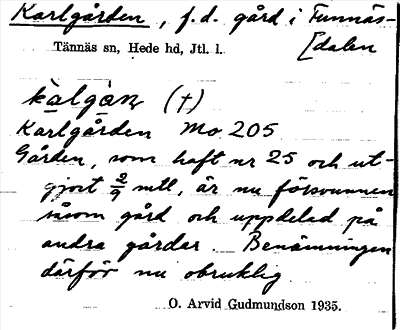 Karlgården, f.d. gård i Funnäs-
[dalen
Tännäs sn, Hede hd, Jtl. l.
(†)
Karlgården Mo 205
Gården, som haft nr 25 och ut-
gjort 2/9 mtl, är nu försvunnen
såsom gård och uppdelad på
andra gårdar. Benämningen
därför nu obruklig.
O. Arvid Gudmundson 1935.